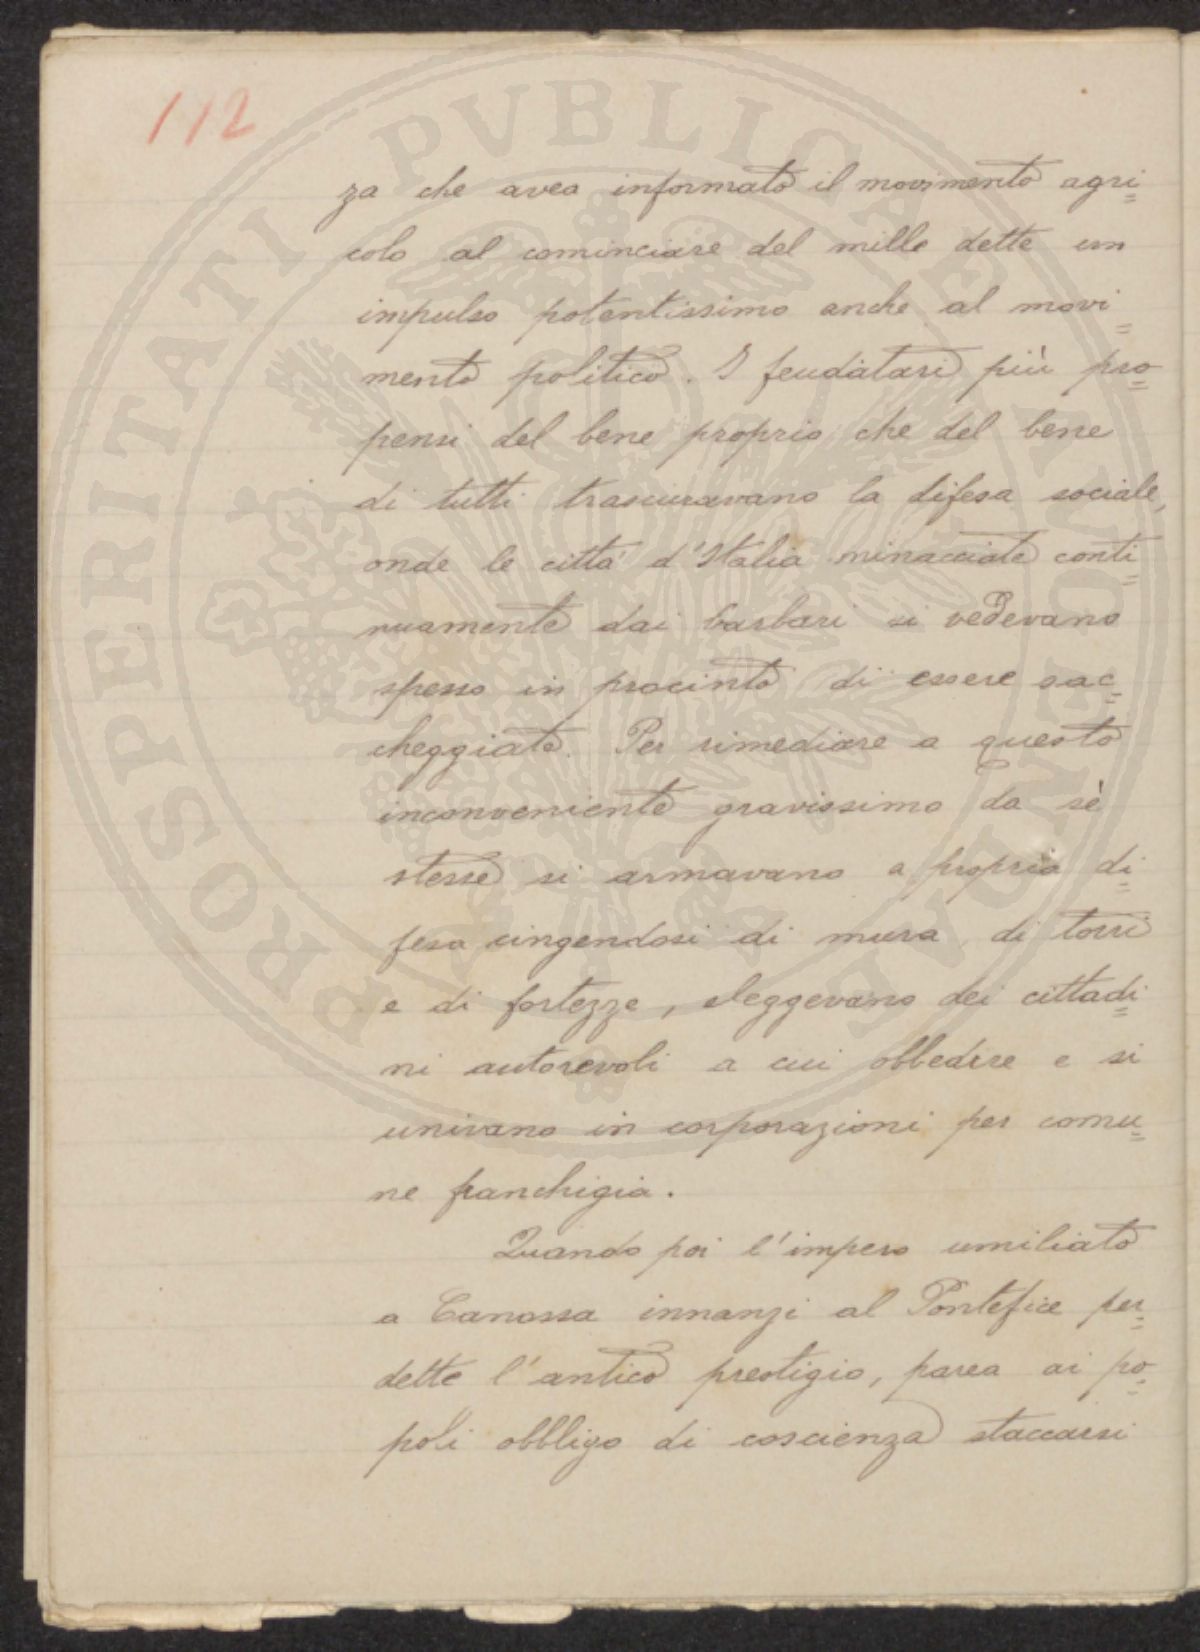 112
za che avea informato il movimento agri=
colo al cominciare del mille dette un
impulso potentissimo anche al movi=
mento politico. I feudatari più pro=
pensi del bene proprio che del bene
di tutti trascuravano la difesa sociale,
onde le città d'Italia minacciate conti=
nuamente dai barbari si vedevano
spesso in procinto di essere sac=
cheggiate. Per rimediare a questo
inconveniente gravissimo da sè
stesse si armavano a propria di=
fesa cingendosi di mura, di torri
e di fortezze, eleggevano dei cittadi=
ni autorevoli a cui obbedire e si
univano in corporazioni per comu=
ne franchigia.
Quando poi l'impero umiliato
a Canossa innanzi al Pontefice per=
dette l'antico prestigio, parea ai po=
poli obbligo di coscienza staccarsi
PROSPERITATI PVBLICAE AVGENDAE